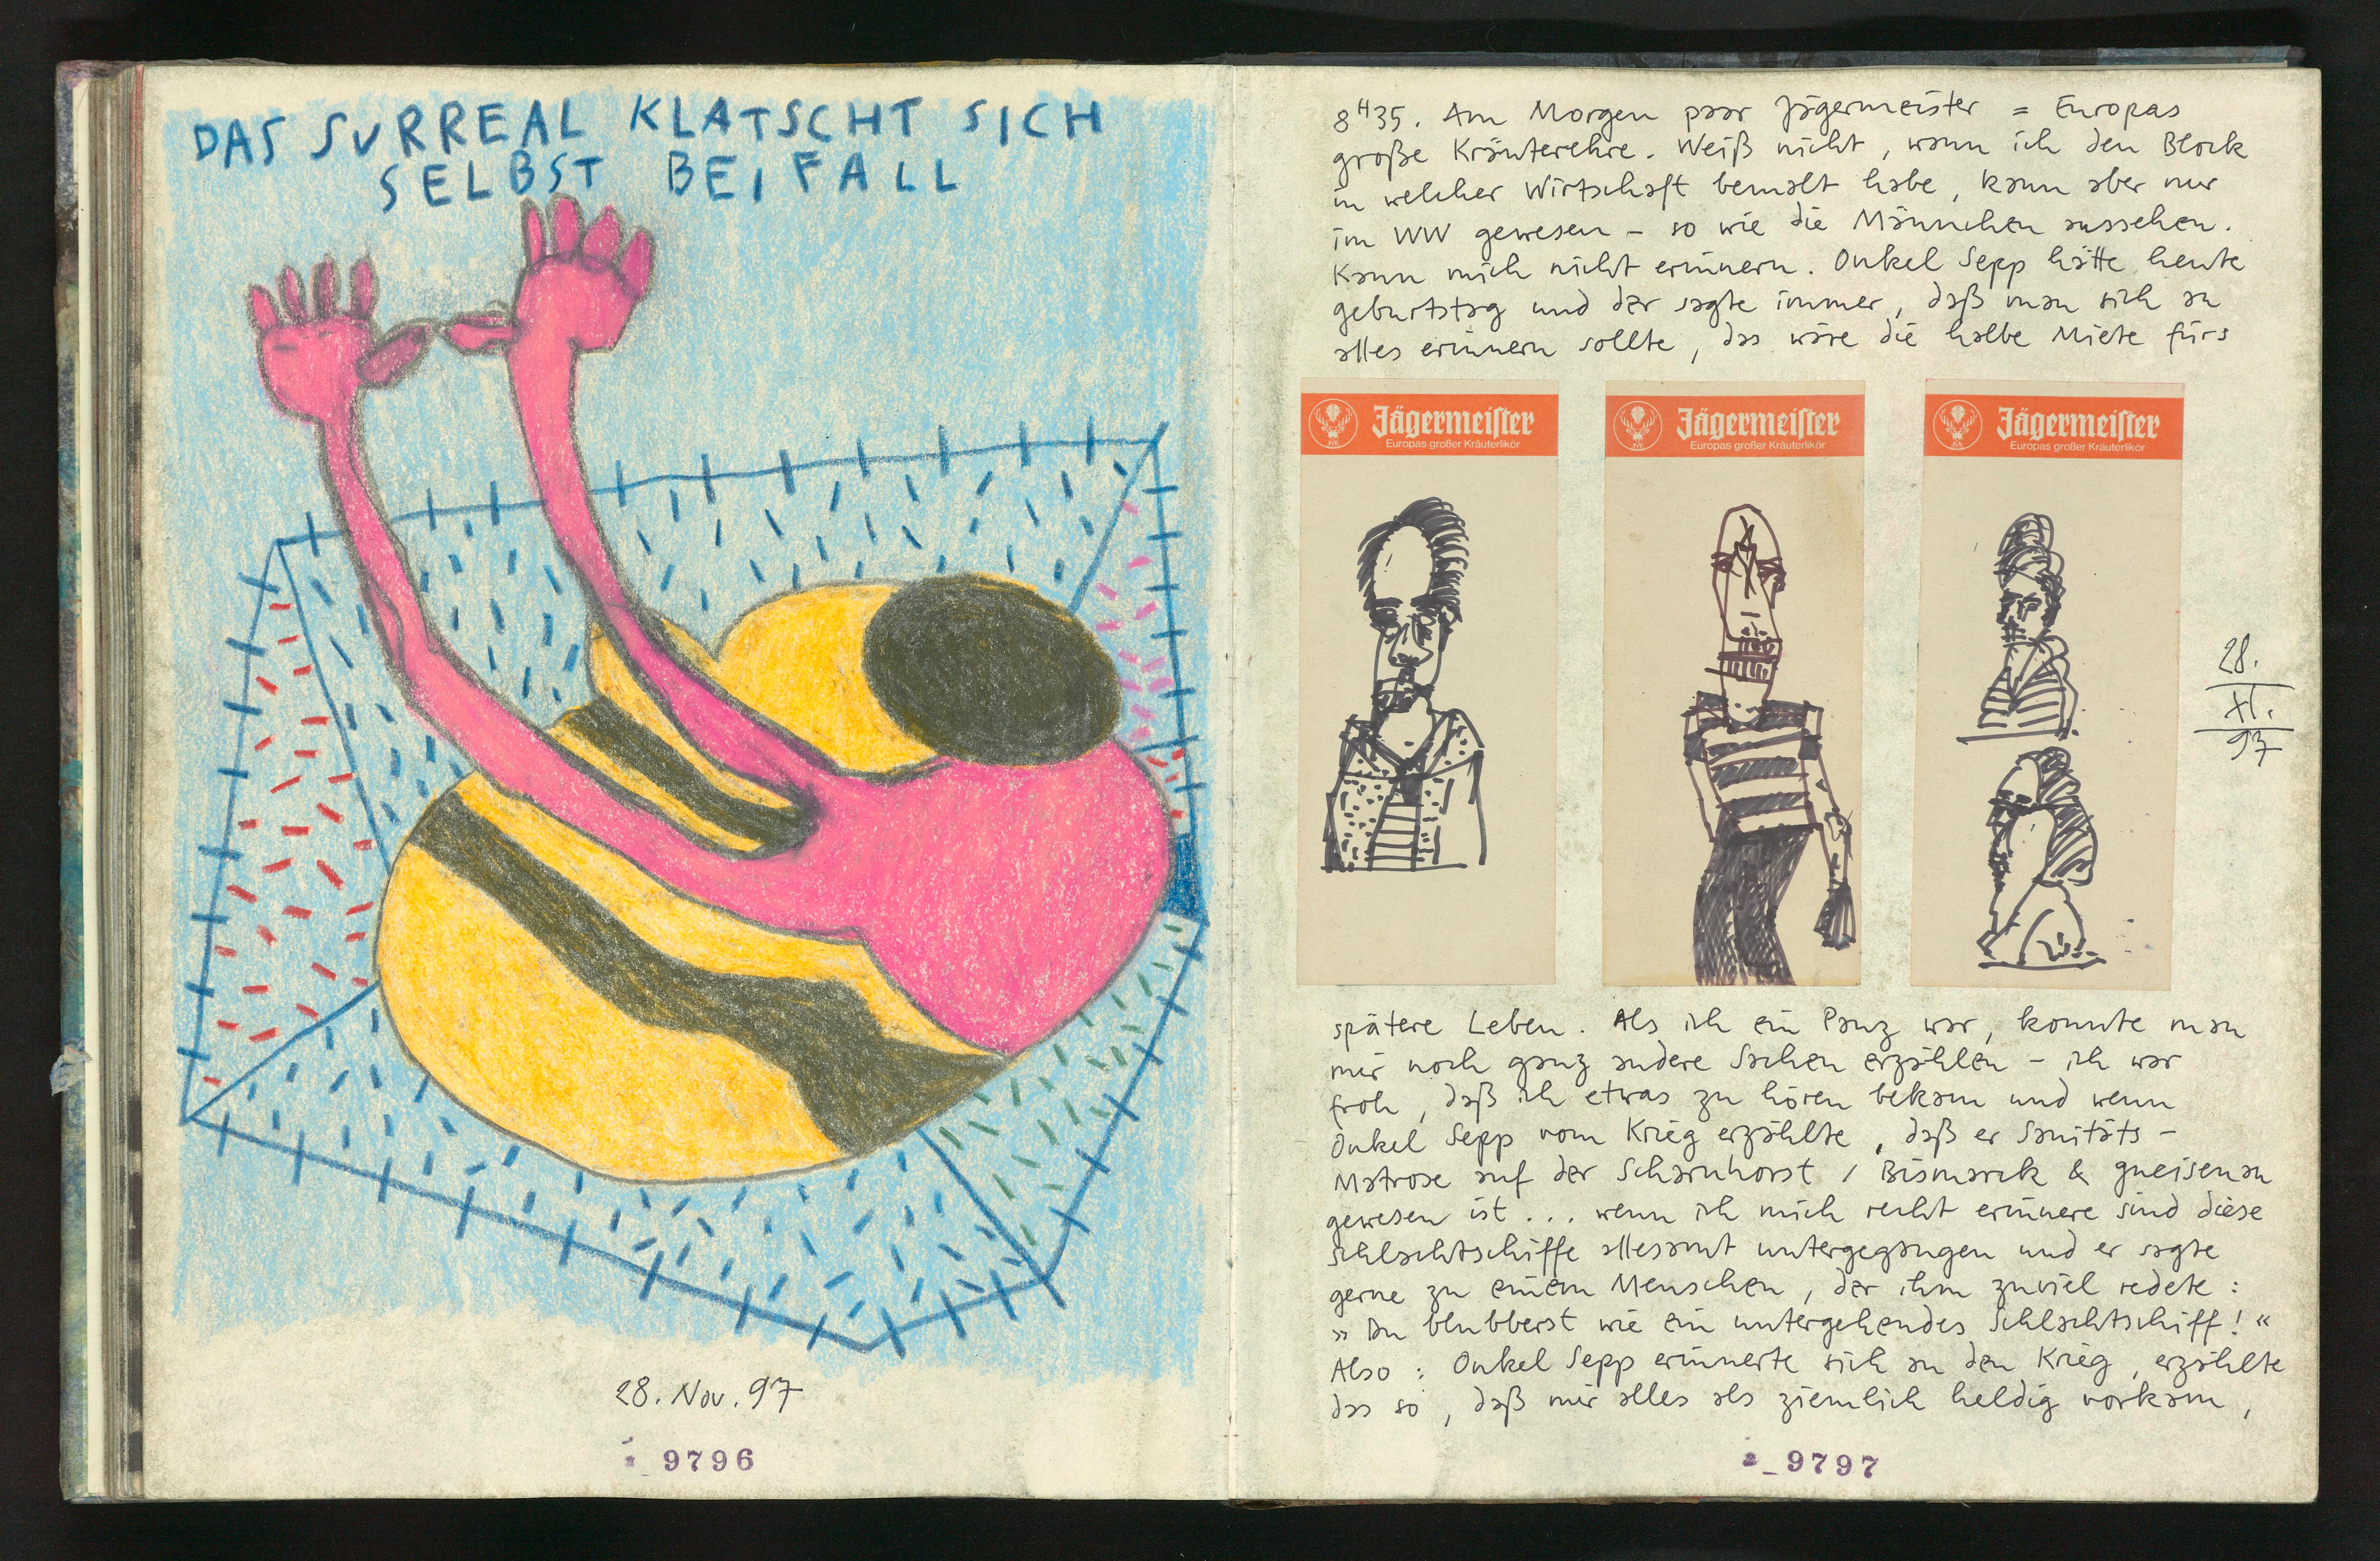 DAS SURREAL KLATSCHT SICH
SELBST BEIFALL
28. Nov. 97
9796
8H35. Am Morgen paar Jägermeister = Europas
große Kräuterehre. Weiß nicht, wann ich den Block
in welcher Wirtschaft bemalt habe, kann aber nur
im WW gewesen – so wie die Männchen aussehen.
Kann mich nicht erinnern. Onkel Sepp hätte heute
geburtstag und der sagte immer, daß man sich an
alles erinnern sollte, das wäre die halbe Miete fürs
Jägermeister
Europas großer Kräuterlikör
Jägermeister
Europas großer Kräuterlikör
Jägermeister
Europas großer Kräuterlikör
28.
XI.
97
spätere Leben. Als ich ein Panz war, konnte man
mir noch ganz andere Sachen erzählen – ich war
froh, daß ich etwas zu hören bekam und wenn
Onkel Sepp vom Krieg erzählte, daß er Sanitäts-
Matrose auf der Scharnhorst / Bismarck & gneisenau
gewesen ist... wenn ich mich recht erinnere sind diese
Schlachtschiffe allesamt untergegangen und er sagte
gerne zu einem Menschen, der ihm zuviel redete:
»Du blubberst wie ein untergehendes Schlachtschiff!«
Also: Onkel Sepp erinnerte sich an den Krieg, erzählte
das so, daß mir alles als ziemlich heldig vorkam,
9797